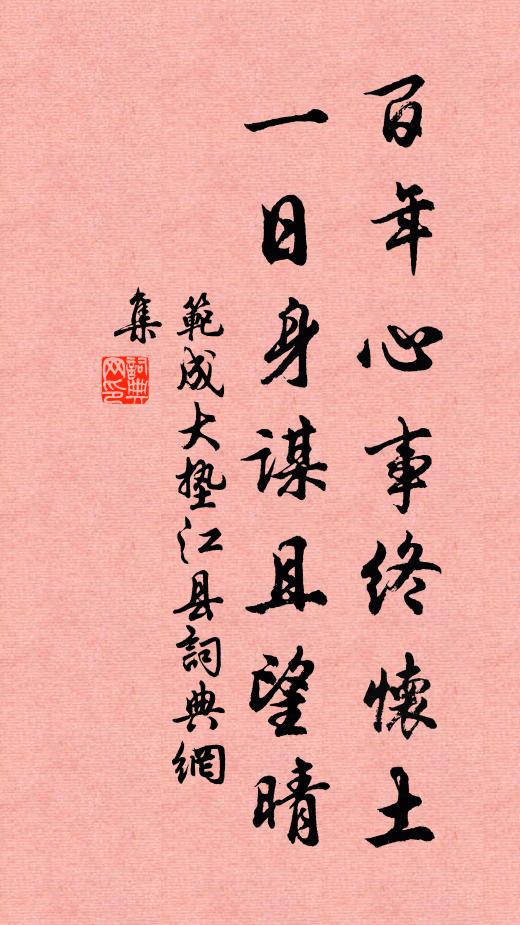 百年心事终懷土
一日身谋且望晴
範成大垫江县詞典網
集
詞典网印